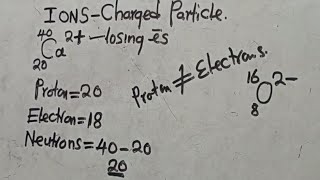 IONS-Charged Particle.
40 Ca 2+ -losing es
20
Proton=20
Electron=18
Neutrons=40-20
20
Proton ≠ Electrons.
16 O 2-
8